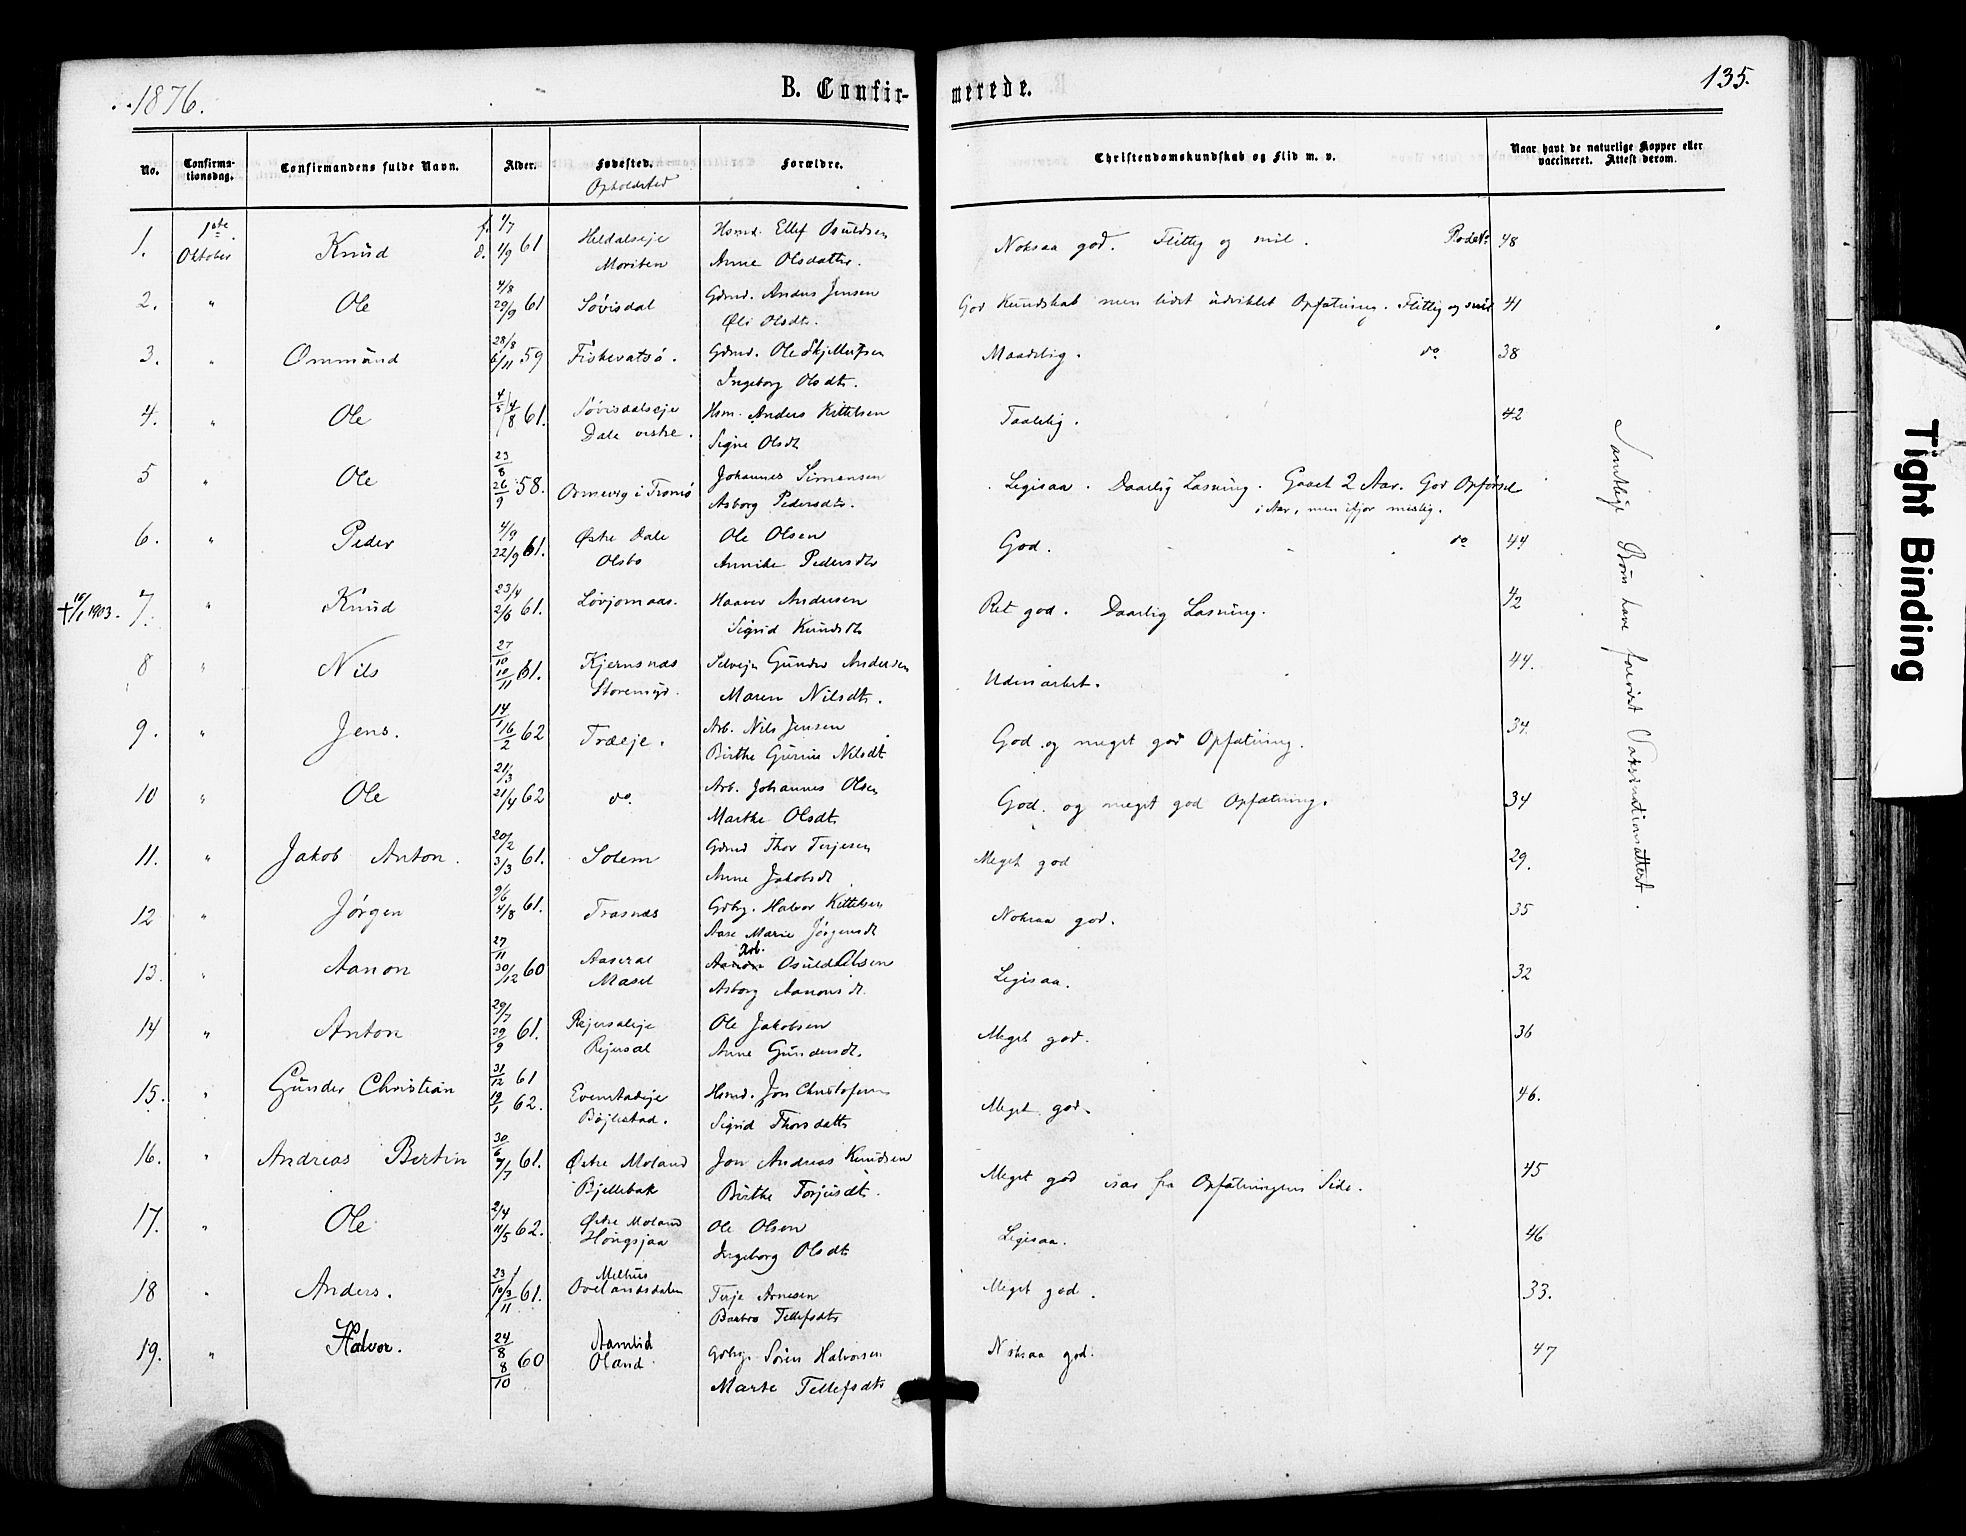 1876.
B. Confir-
merede.
135.
No.
Confirma-
tionsdag.
Confirmandens fulde Navn.
Alder.
Fødested.
Opholdsted
Forældre.
Christendomskundskab og Flid m. v.
Naar havt de naturlige Kopper eller
vaccineret. Attest derom.
1. 1ste Oktober Knud f. 1/7 d. 1/9 61 Hsmd. Ellef Osuldsen
Anne Olsdatter.
Noksaa god. Flittig og snil. 48
2. " Ole 4/8 29/9 61 Søvisdal Gdmd. Anders Jensen
Øli Olsdt.
God Kundskab men lidet udviklet Opfatning. Flittig og snil 41
3. " Ommund 28/8 6/11 59 Fiskevatsø. Gdmd. Ole Skjellufsen
Ingeborg Olsdt.
Maadelig. do 38
4. " Ole 4/5 4/8 61. Søvisdalseje Hsm. Anders Kittelsen
Dale vestre. Signe Olsdt
Taalelig. 42
5 " Ole 23/8 26/9 58. Ormevig i Tromø Johannes Simonsen
Asborg Pedersdt.
Legisaa. Daarlig Læsning. Gaaet 2 Aar. God Opførsel
i Aar, men ifjor mislig.
6. " Peder 4/9 22/9 61. Østre Dale Ole Olsen
Olsbo Annike Pedersdt
God. do 44
+ 16/1 1903. 7. " Knud 23/4 2/6 61. Løvjomaas. Haaver Andersen
Sigrid Knudsdt
Ret god. Daarlig Læsning. 42
8 " Nils 27/10 10/11 61. Kjernsnæs Selvejer Gunder Andersen
Storemyr. Maren Nilsdt.
Udmærket. 44.
9. " Jens. 14/1 16/2 62 Træeje. Arb. Nils Jensen
Birthe Gurine Nilsdt
God og meget god Opfatning. 34.
10 " Ole 21/3 21/4 62 do. Arb. Johannes Olsen
Marthe Olsdt.
God. og meget god Opfatning. 34
11. " Jakob Anton. 20/2 3/3 61. Solem Gdmd Thor Terjesen
Anne Jakobsdt
Meget god 29.
12 " Jørgen 9/6 4/8 61. Trasnæs Gdbr. Halvor Kittelsen
Aase Marie Jørgensdt
Noksaa god. 35
13. " Aanon 27/11 30/12 60 Aaseral Arb. Osuld Olsen
Asborg Aanonsdt.
Legisaa. 32
14 " Anton 29/7 29/9 61. Rejersøleje Ole Jakobsen
Rejersøl Anne Gundersdt.
Meget god. 36
15. " Gunder Christian 31/12 61 19/1 62. Evenstadeje Hsmd. Jon Christofersen
Bøjlestad. Sigrid Thorsdatter
Meget god. 46.
16. " Andreas Bertin 30/6 7/7 61. Østre Moland Jon Andreas Knudsen
Bjellebak Birthe Torjusdt.
Meget god især fra Opfatningens Side. 45
17. " Ole 2/4 11/5 62. Østre Moland Ole Olsen
Høngsjaa Ingeborg Olsdt
Legisaa. 46
18 " Anders. 61. Melhus
Ovelandsdalen Terje Arnesen
Barbro Tellefsdt
Meget god. 33.
19. " Halvor. 24/8 8/10 60 Aamlid
Oland Gdbr. Søren Halvorsen
Marte Tellefsdt
Noksaa god. 47
Samtlige Børn have forevist Vaksinationsattest.
Tight Binding